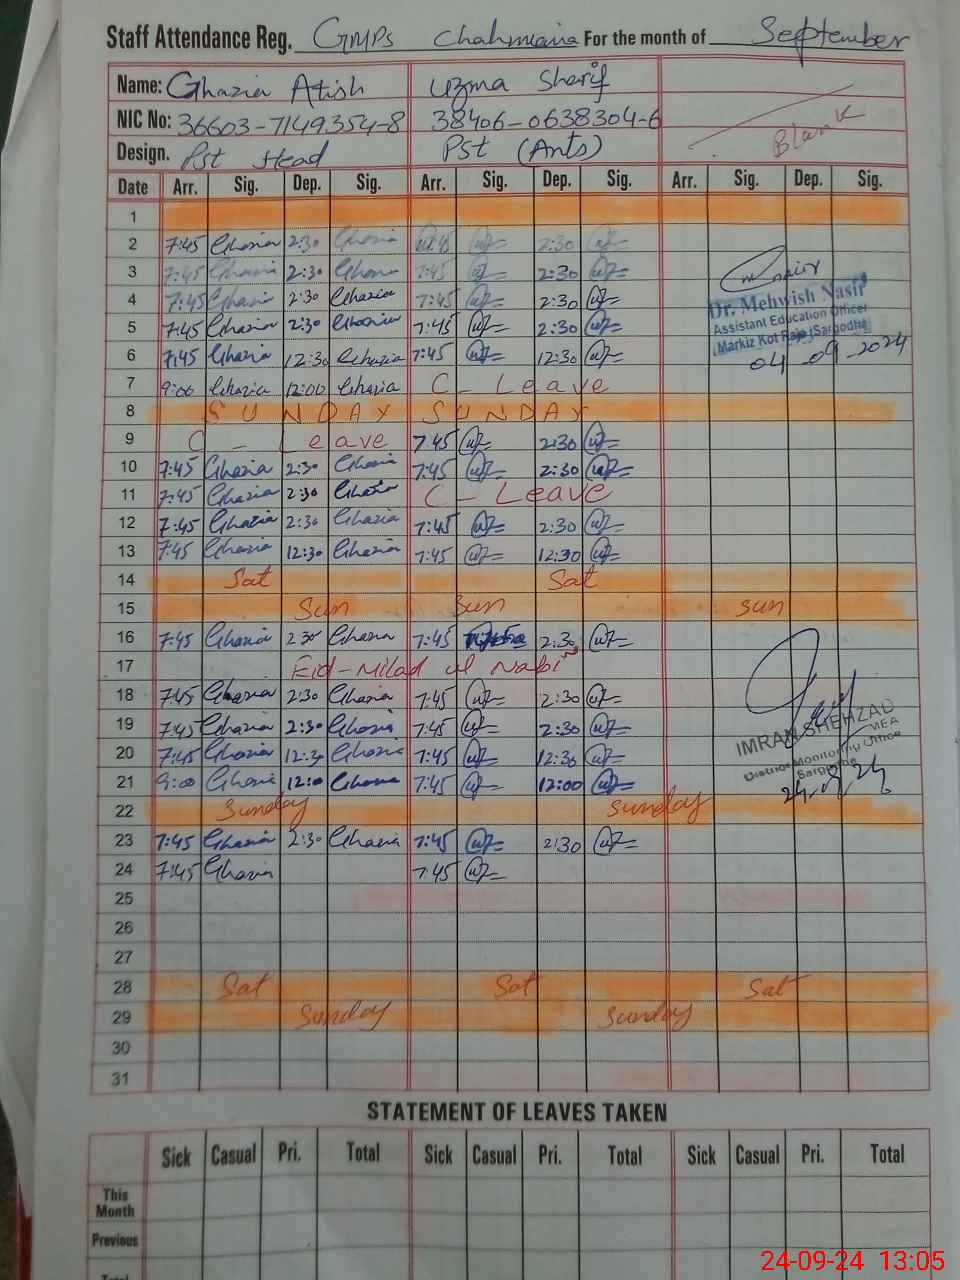 Staff Attendance Reg. GMPS Chahmiana For the month of September
Name: Ghazia Atish Uzma Sharif
NIC No: 36603-7149354-8 38406-0638304-6
Design. Pst Head PST (Ants) Blank
Date Arr. Sig. Dep. Sig. Arr. Sig. Dep. Sig. Arr. Sig. Dep. Sig.
1
2 7:45 Ghazia 2:30 Ghazia 7:45 2:30
3 7:45 Ghazia 2:30 Ghazia 7:45 2:30
4 7:45 Ghazia 2:30 Ghazia 7:45 2:30
Dr. Mehwish Nasir
Assistant Education Officer
5 7:45 Ghazia 2:30 Ghazia 7:45 2:30
Markiz Kot Raja (Sargodha)
6 7:45 Ghazia 12:30 Ghazia 7:45 12:30 04-09-2024
7 9:00 Ghazia 12:00 Ghazia C - Leave
8 SUNDAY SUNDAY
9 C - Leave 7:45 2:30
10 7:45 Ghazia 2:30 Ghazia 7:45 2:30
11 7:45 Ghazia 2:30 Ghazia C - Leave
12 7:45 Ghazia 2:30 Ghazia 7:45 2:30
13 7:45 Ghazia 12:30 Ghazia 7:45 12:30
14 Sat Sat
15 Sun Sun Sun
16 7:45 Ghazia 2:30 Ghazia 7:45 2:30
17 Eid-Milad ul Nabi
18 7:45 Ghazia 2:30 Ghazia 7:45 2:30
19 7:45 Ghazia 2:30 Ghazia 7:45 2:30
IMRAN SHEHZAD
MEA
20 7:45 Ghazia 12:30 Ghazia 7:45 12:30
District Monitoring Office
Sargodha
21 9:00 Ghazia 12:00 Ghazia 7:45 12:00
24.9.24
22 Sunday Sunday
23 7:45 Ghazia 2:30 Ghazia 7:45 2:30
24 7:45 Ghazia 7:45
25
26
27
28 Sat Sat Sat
29 Sunday Sunday
30
31
STATEMENT OF LEAVES TAKEN
Sick Casual Pri. Total Sick Casual Pri. Total Sick Casual Pri. Total
This
Month
Previous
Total
24-09-24 13:05